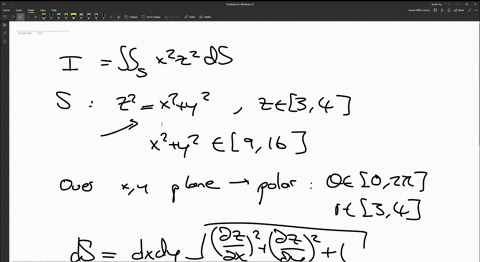 I = ∬_S x²z² dS
S : z² = x²+y² , z∈[3,4]
x²+y² ∈ [9,16]
Over x,y plane → polar : θ∈[0,2π]
r∈[3,4]
dS = dxdy √((∂z/∂x)²+(∂z/∂y)²+1